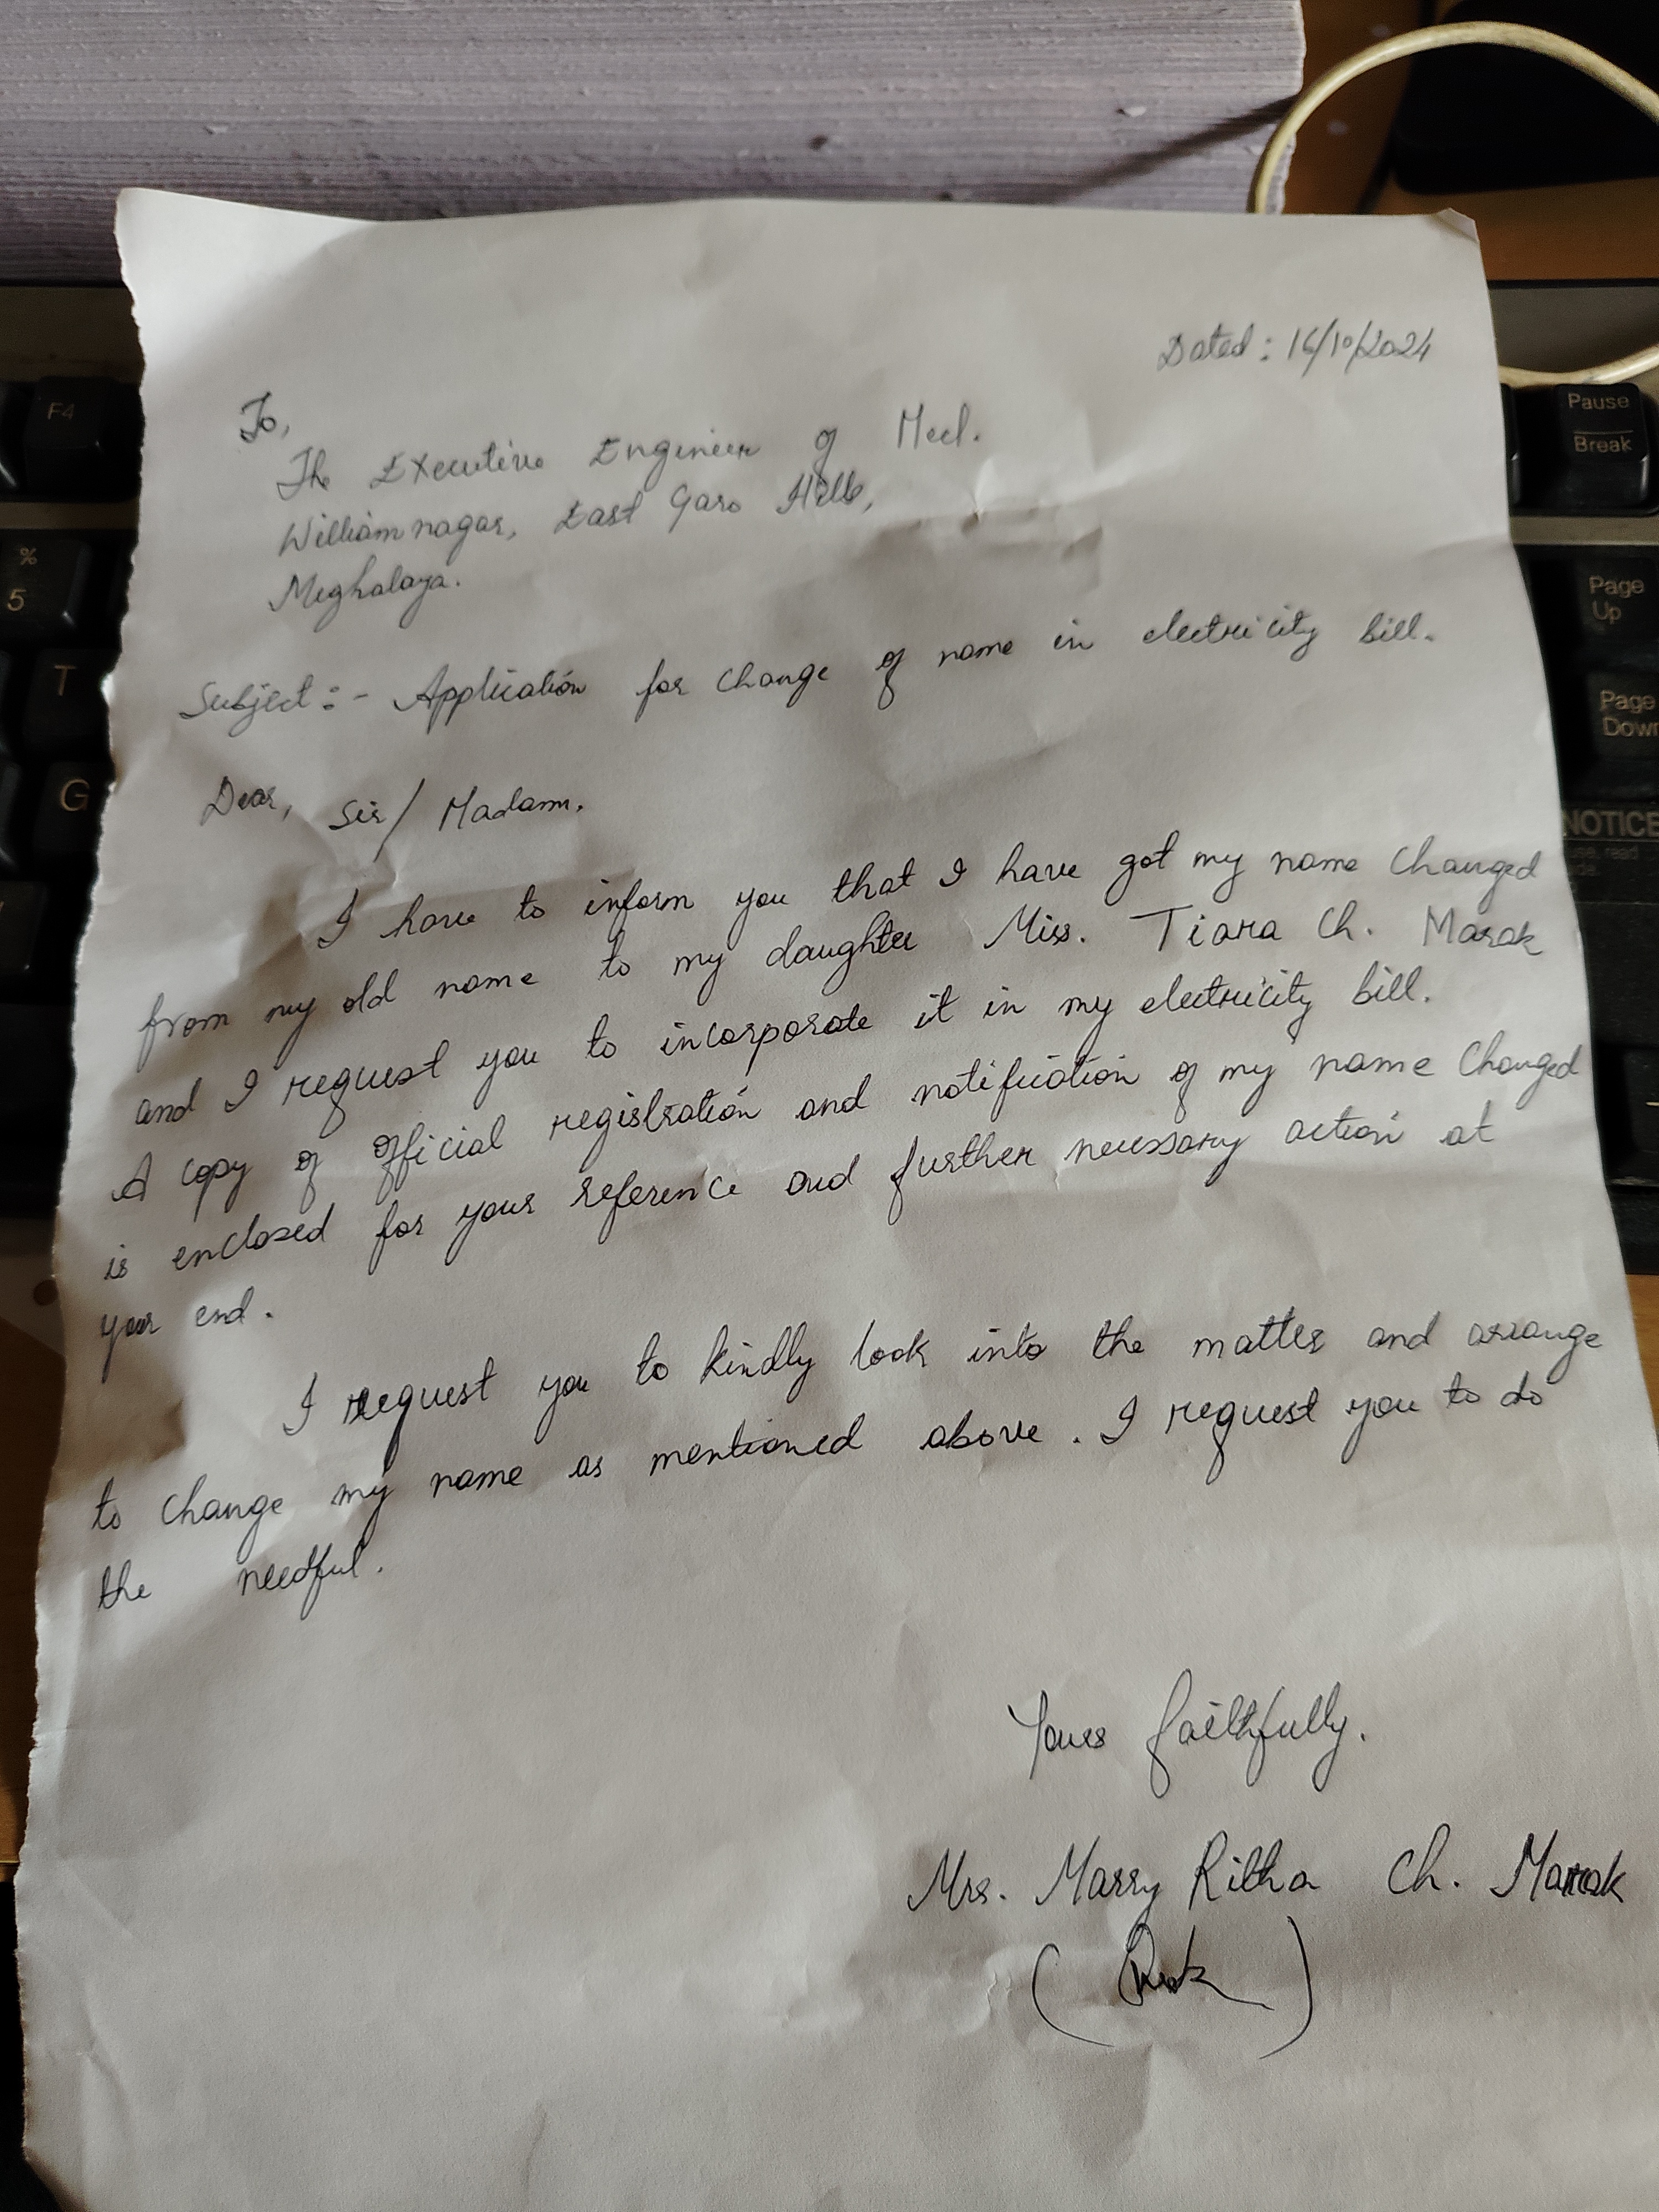 Dated : 16/10/2024
To,
The Executive Engineer of Mecl.
Williamnagar, East Garo Hills,
Meghalaya.
Subject :- Application for change of name in electricity bill.
Dear, Sir/ Madam.
I have to inform you that I have got my name changed
from my old name to my daughter Miss. Tiara Ch. Marak
and I request you to incorporate it in my electricity bill.
A copy of official registration and notification of my name changed
is enclosed for your reference and further necessary action at
your end.
I request you to kindly look into the matter and arrange
to change my name as mentioned above. I request you to do
the needful.
Yours faithfully.
Mrs. Marry Ritha Ch. Marak
F4
%
5
T
G
Pause
Break
Page
Up
Page
Down
NOTICE